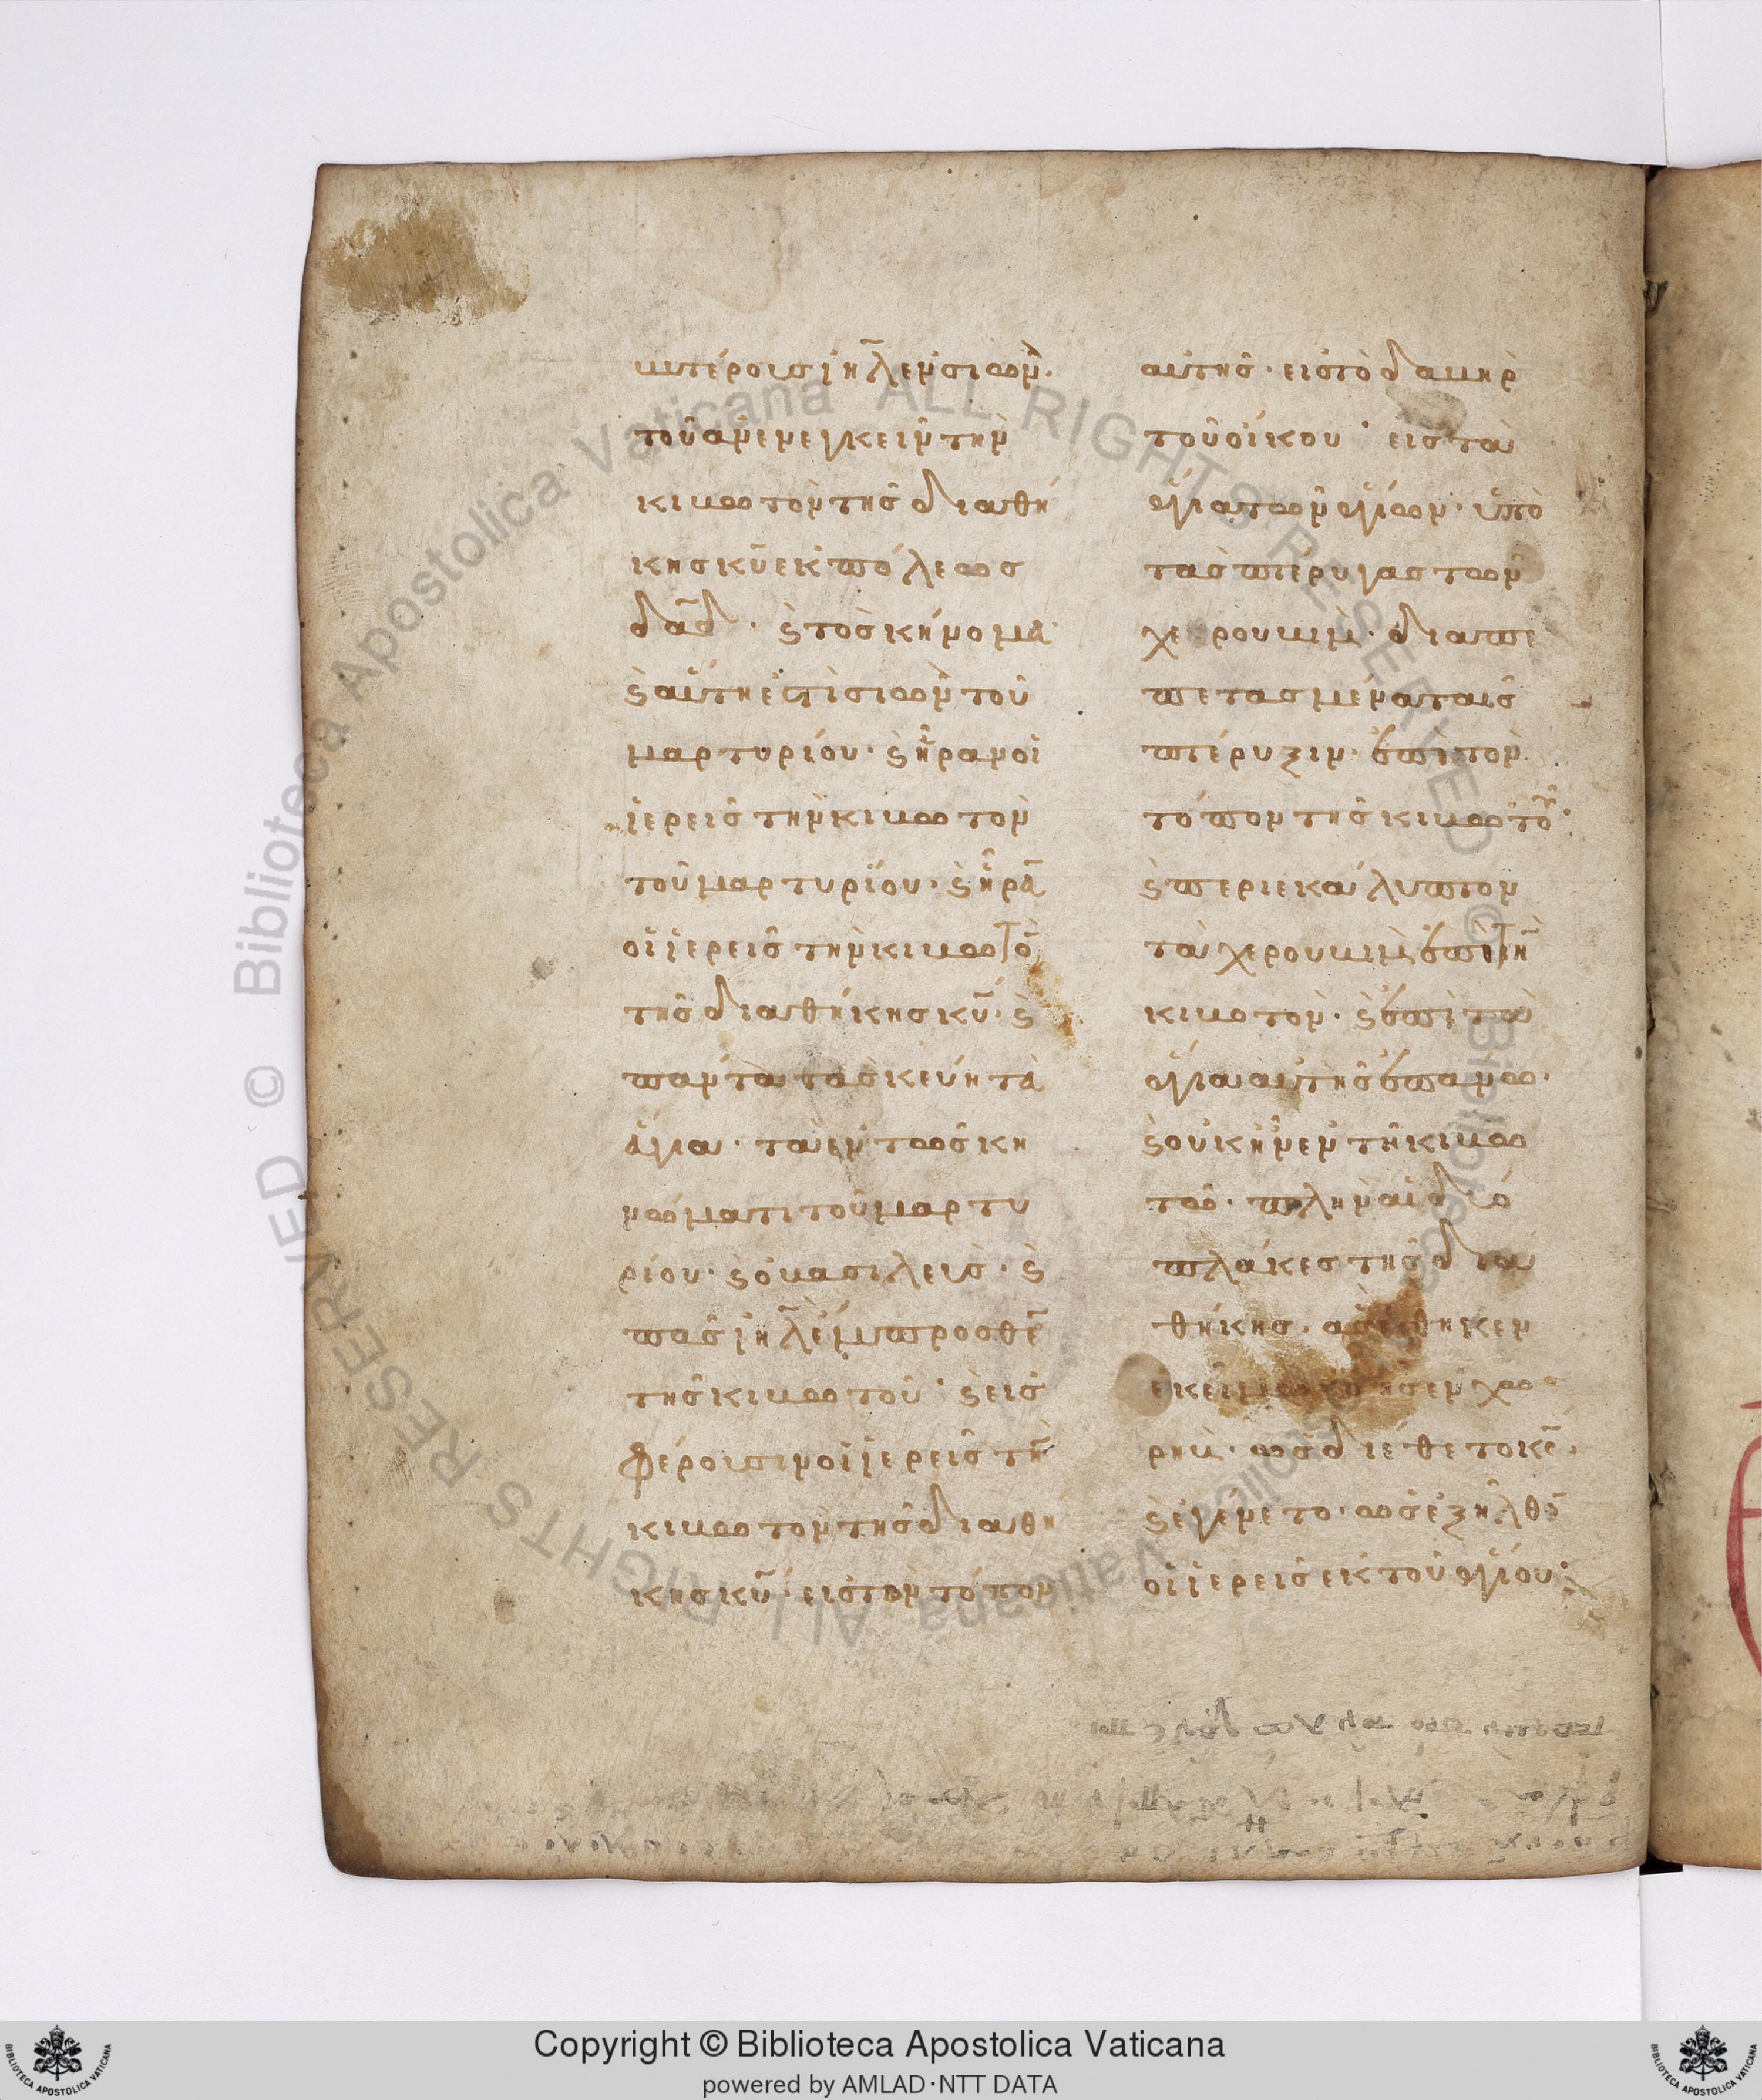 υτέροις ἰη̅λ ἐν σιὼν·
τοῦ ἀνενεγκεῖν τὴν
κιβωτὸν τῆς διαθή
κης κυ̅ ἐκ πόλεως
δα̅δ· ϛ τὸ σκήνομα·
ϛ αὕτη ἐστὶ σιὼν τοῦ
μαρτυρίου· ϛ ἦραν οἱ
ἱερεῖς τὴν κιβωτὸν
τοῦ μαρτυρίου· ϛ ἦρα̅
οἱ ἱερεῖς τὴν κιβωτο̅
τῆς διαθήκης κυ̅· ϛ
πάντα τὰ σκεύη τὰ
ἅγια· τὰ ἐν τῶ σκη
νώματι τοῦ μαρτυ
ρίου· ϛ ὁ βασιλεὺς· ϛ
πᾶς ἰη̅λ ἔμπροσθε̅
τῆς κιβωτοῦ· ϛ εἰσ
φέρουσιν οἱ ἱερεῖς τη̅
κιβωτὸν τῆς διαθή
κης κυ̅· εἰς τὸν τόπον
αὐτῆς· εἰς τὸ δαβὴρ
τοῦ οἴκου· εἰς τὰ
ἅγια τῶν ἁγίων· ὑπὸ
τὰς πτέρυγας τῶν
χερουβιμ· διαπε
πετασμένα ταῖς
πτέρυξιν· ἐπὶ τὸν
τόπον τῆς κιβωτοῦ·
ϛ περιεκάλυπτον
τὰ χερουβιμ ἐπὶ τη̅
κιβωτὸν· ϛ ἐπὶ τὰ
ἅγια αὐτῆς ἐπάνω·
ϛ οὐκ ἦν ἐν τῆ κιβω
τῶ· πλὴν αἱ δύο
πλάκες τῆς δια
θήκης· ἃς ἔθηκεν
ἐκεῖ μωυσῆς ἐν χω
ρήβ· ὡς διέθετο κς̅·
ϛ ἐγένετο· ὡς ἐξῆλθο̅
οἱ ἱερεῖς ἐκ τοῦ ἁγίου·